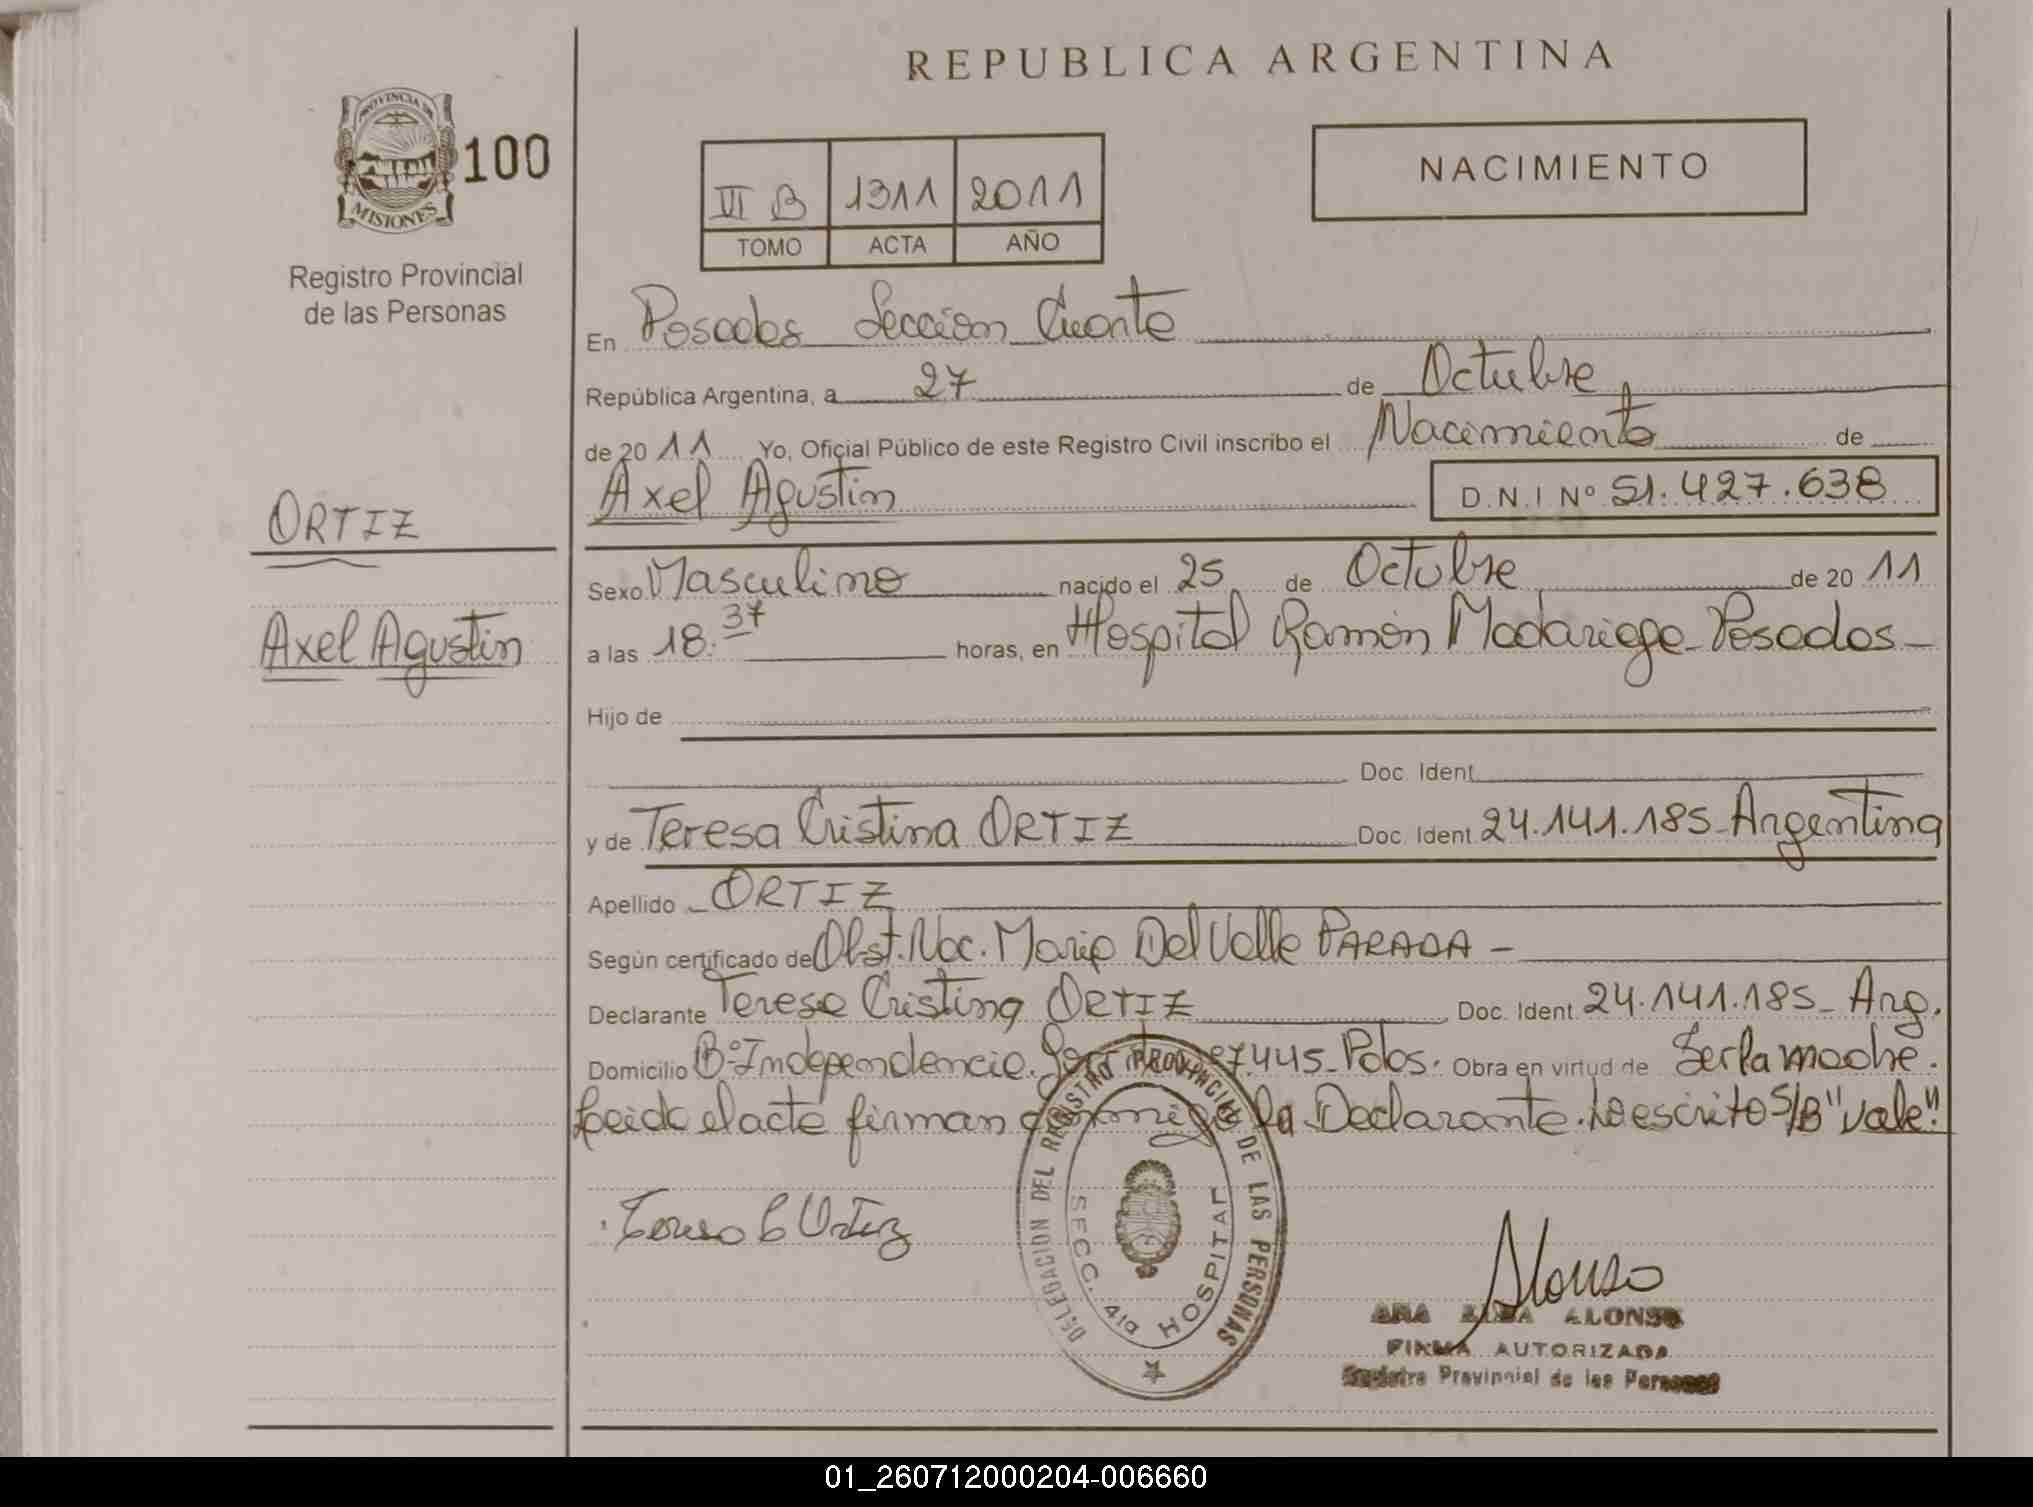 REPUBLICA ARGENTINA
PROVINCIA DE
MISIONES
100
Registro Provincial
de las Personas
NACIMIENTO
VI B 1311 2011
TOMO ACTA AÑO
En Posadas Sección Cuarta
República Argentina, a 27 de Octubre
de 2011 Yo, Oficial Público de este Registro Civil inscribo el Nacimiento de
Axel Agustin D.N.I Nº 51.427.638
ORTIZ
Axel Agustin
Sexo Masculino nacido el 25 de Octubre de 2011
a las 18:37 horas, en Hospital Ramón Madariaga - Posadas
Hijo de
Doc. Ident.
y de Teresa Cristina ORTIZ Doc. Ident. 24.141.185 - Argentina
Apellido ORTIZ
Según certificado de Obst. Nac. Maria Del Valle PARADA -
Declarante Teresa Cristina ORTIZ Doc. Ident. 24.141.185 - Arg.
Domicilio Bº Independencia. 7445 - Pdas. Obra en virtud de Ser la madre.
Leida el acta firman conmigo la Declarante. Lo escrito S/B "vale".
Teresa C Ortiz
DELEGACION DEL REGISTRO PROVINCIAL DE LAS PERSONAS
SECC. 4ta HOSPITAL
Alonso
ANA ALONSO
FIRMA AUTORIZADA
Registro Provincial de las Personas
01_260712000204-006660